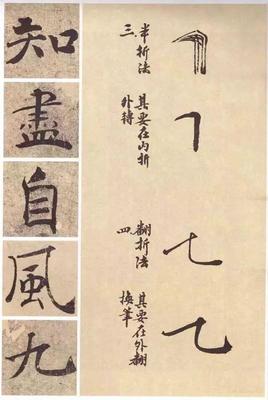 三
半折法
其要在内折
外转
四
翻折法
其要在外翻
换笔
知
盡
自
風
九